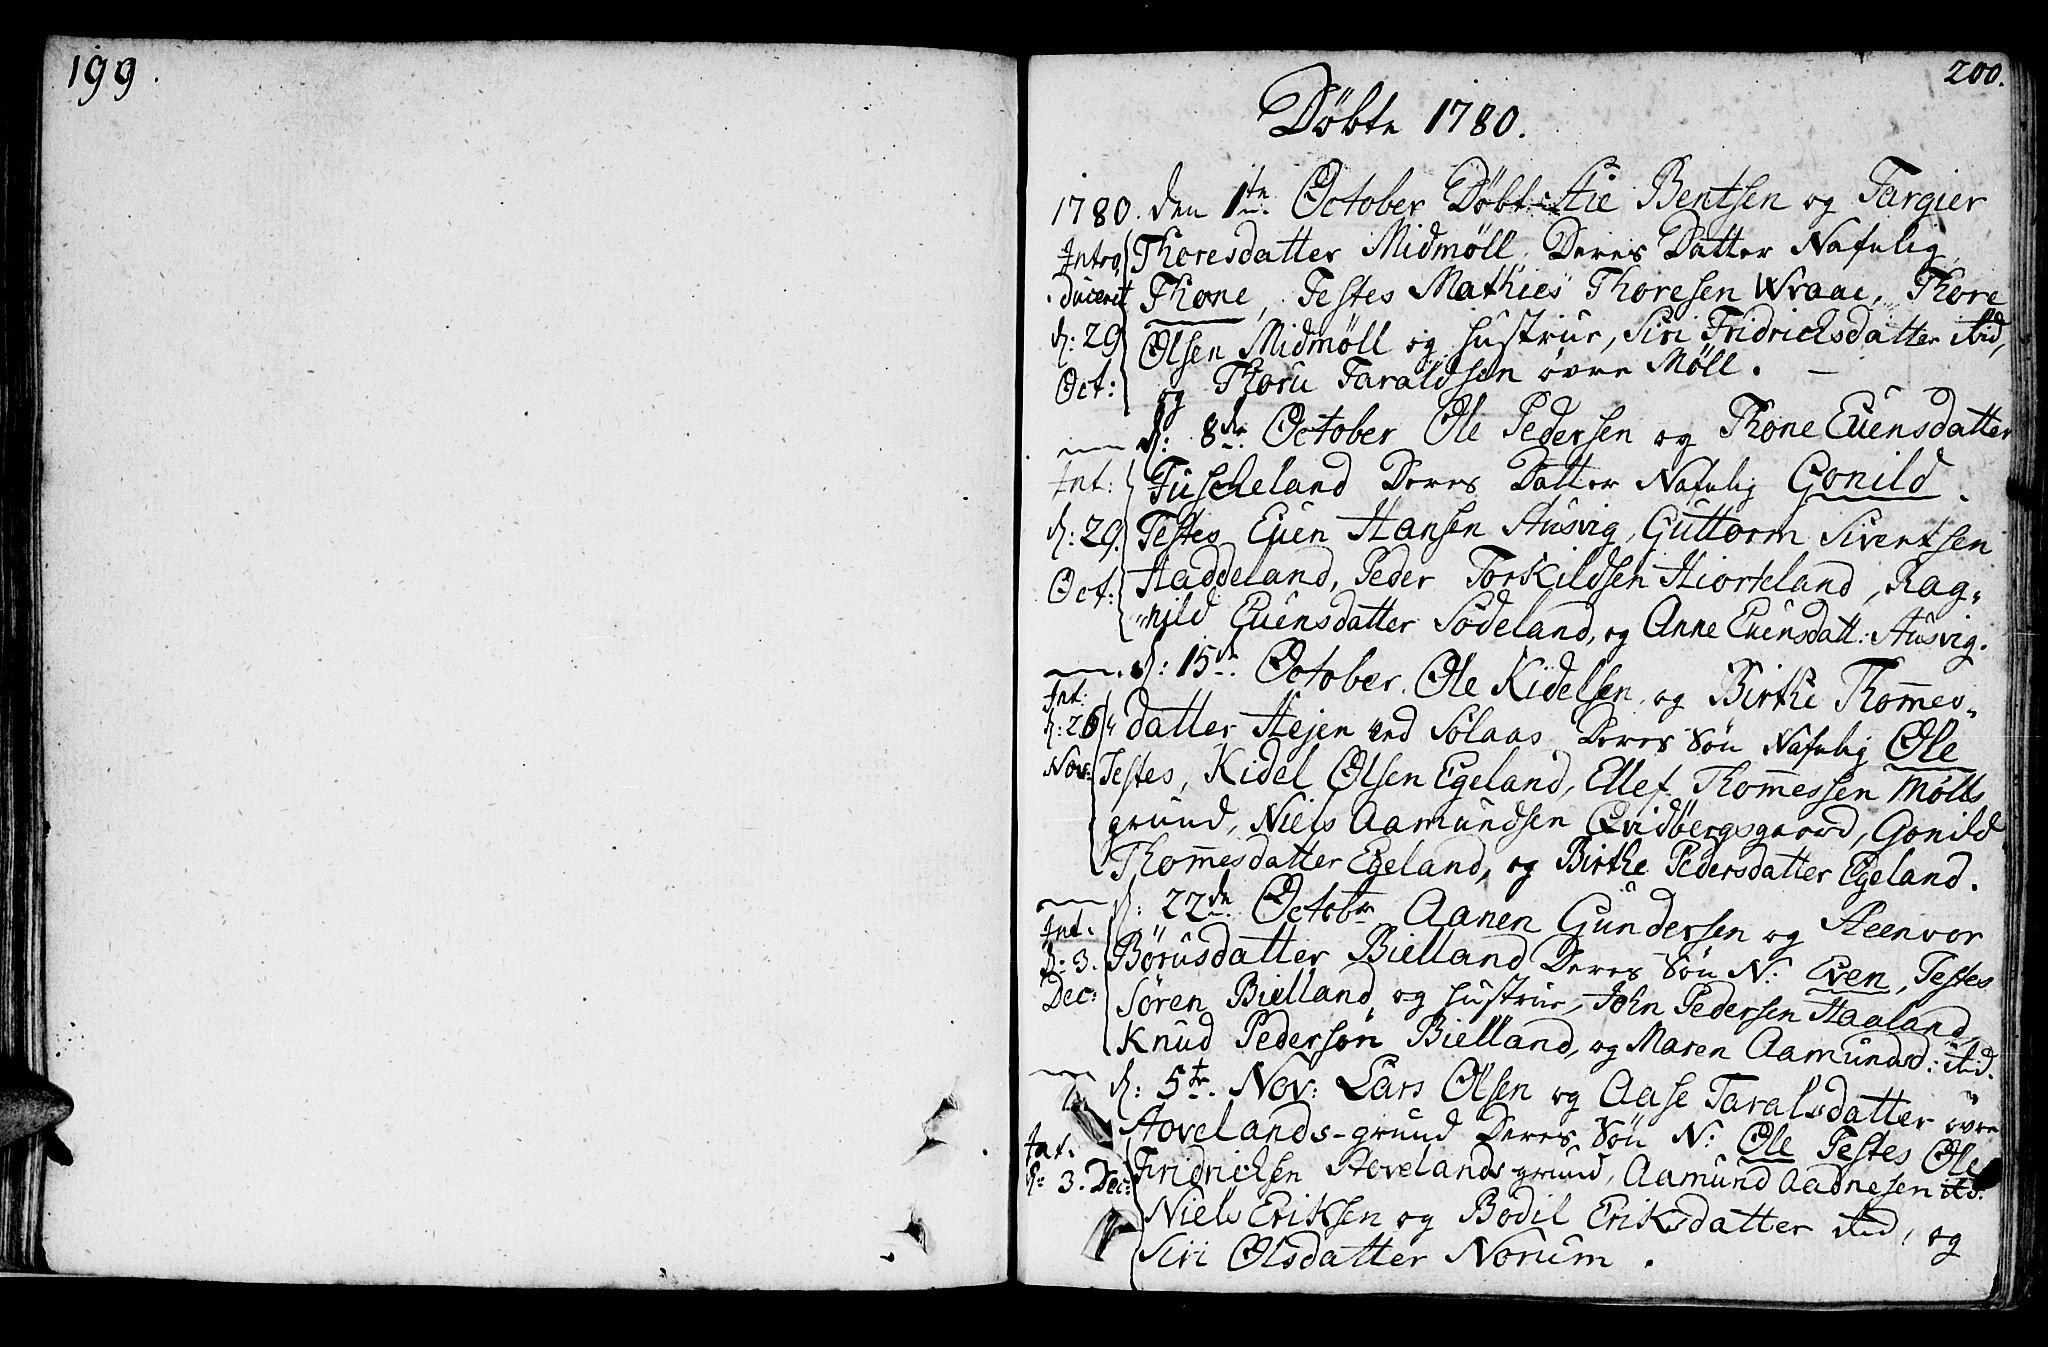 199.
200.
Döbte 1780.
1780. den 1te October Döbt Stie Bentsen og Targier
Thoresdatter Midmöll. Deres Datter Nafnlig
Thone, Testes Mathies Thoresen Wraae, Thore
Olsen Midmöll og Hustrue, Siri Fridrichsdatter ibid,
og Thoru Taraldsen övre Möll. —
Intro
ducerit
d: 29
Oct:
d: 8de October Ole Pedersen og Thone Euensdatter
Fuscheland Deres Datter Nafnlig Gonild.
Testes Euen Hansen Ausvig, Guttorm Sivertsen
Haddeland, Peder Torkildsen Hiorteland, Rag-
-nild Euensdatter Södeland, og Anne Euensdatt: Ausvig.
Int:
d: 29.
Oct:
d: 15de October. Ole Kidelsen og Birthe Thom̄es-
datter Hejen ved Solaas Deres Sön Nafnlig Ole
Testes, Kidel Olsen Egeland, Ellef Thom̄essen Mölls
grund, Niels Aamundsen Qvidbergsgaard, Gonild
Thom̄esdatter Egeland, og Birthe Pedersdatter Egeland.
Int:
d: 26
Nov:
d: 22de Octobr Aanen Gundersen og Steenvor
Börusdatter Bielland Deres Sön N: Even, Testes
Sören Bielland og Hustrue, John Pedersen Haaland,
Knud Pedersön Bielland, og Maren Aamundsd: ibid.
Int.
d: 3.
Dec:
d: 5te Nov: Lars Olsen og Aase Taralsdatter övre
Hovelands-grund Deres Sön N: Ole Testes Ole
Fridrichsen Hovelands grund, Aamund Aadnesen ibd.
Niels Eriksen og Bodil Eriksdatter ibid, og
Siri Olsdatter Norum.
Int.
d: 3. Dec: